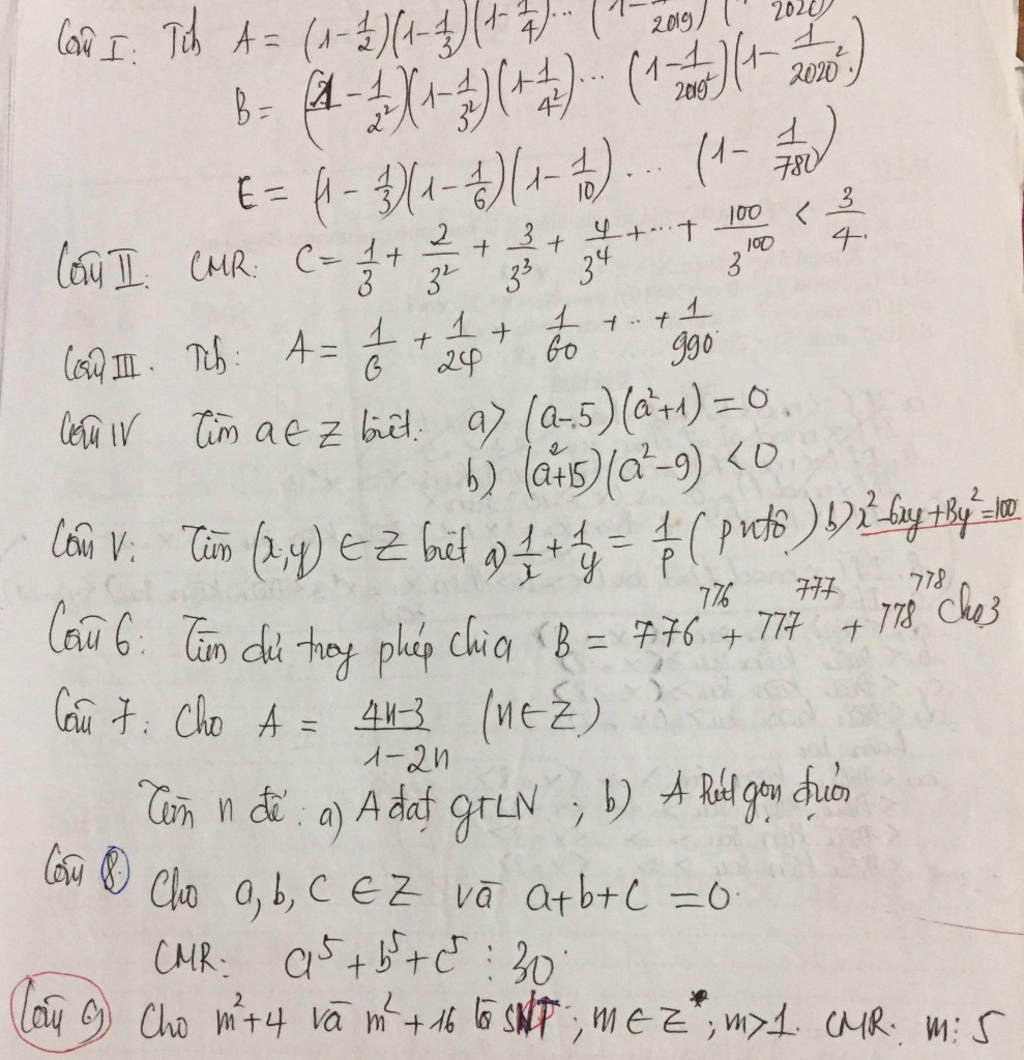 Câu I: Tíh A = (1-1/2)(1-1/3)(1-1/4)... (1-1/2019)(1-1/2020)
B = (1-1/2²)(1-1/3²)(1-1/4²)... (1-1/2019²)(1-1/2020².)
E = (1-1/3)(1-1/6)(1-1/10)... (1-1/780)
Câu II: CMR: C = 1/3 + 2/3² + 3/3³ + 4/3⁴ +...+ 100/3¹⁰⁰ < 3/4.
Câu III. Tíh: A = 1/6 + 1/24 + 1/60 +..+ 1/990.
Câu IV Tìm a ∈ Z biết: a) (a-5)(a²+1) = 0.
b) (a²+15)(a²-9) < 0
Câu V: Tìm (x,y) ∈ Z biết a) 1/x + 1/y = 1/p (p ntố) b) x²-6xy+13y²=100
Câu 6: Tìm dư trog phép chia B = 776⁷⁷⁶ + 777⁷⁷⁷ + 778⁷⁷⁸ cho 3
Câu 7: Cho A = 4n-3/1-2n (n ∈ Z)
Tìm n để: a) A đạt GTLN ; b) A Rút gọn được
Câu 8. Cho a, b, c ∈ Z và a+b+c = 0.
CMR: a⁵+b⁵+c⁵ ⋮ 30.
Câu 9 Cho m²+4 và m²+16 là SNT ; m ∈ Z* ; m>1. CMR: m ⋮ 5